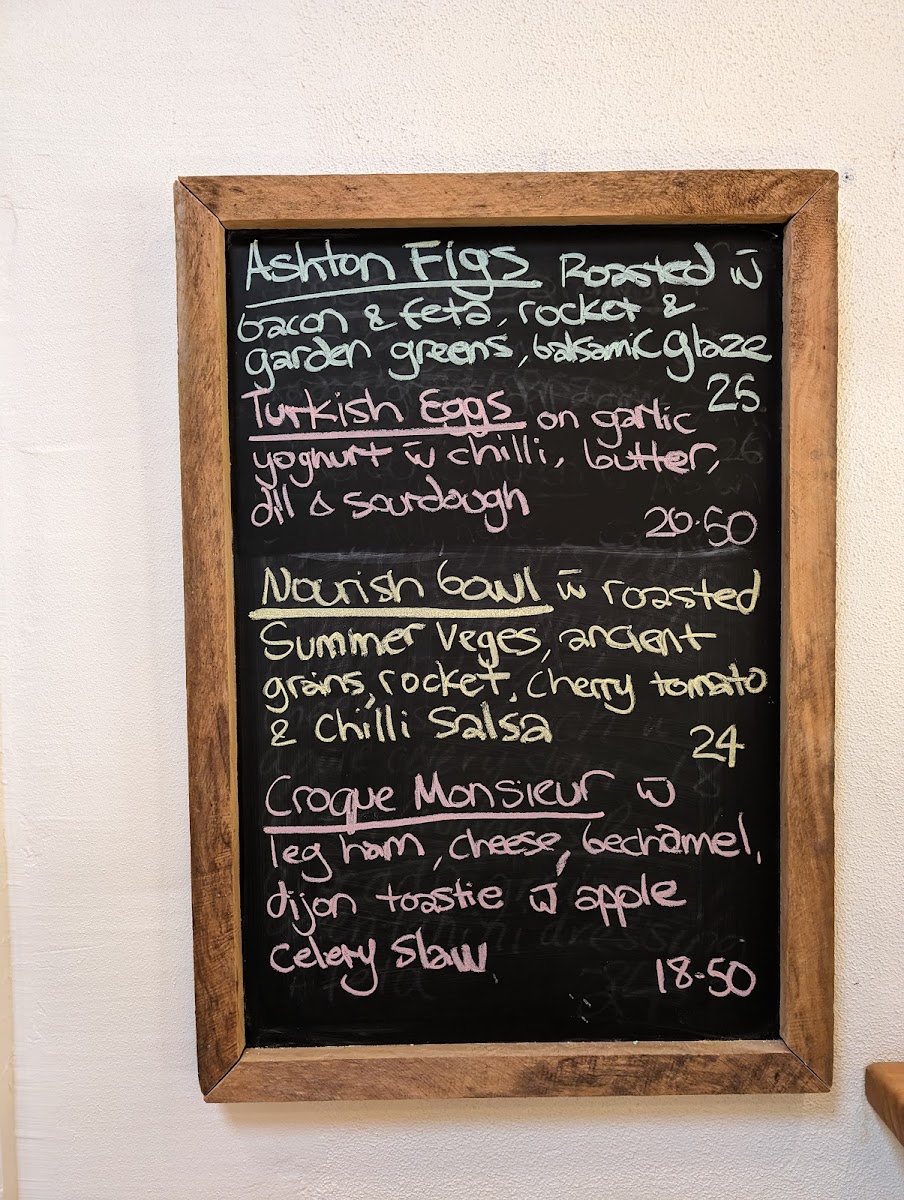 Ashton Figs Roasted w̄
bacon & feta, rocket &
garden greens, balsamic glaze
25
Turkish Eggs on garlic
yoghurt w̄ chilli, butter,
dill & sourdough
20.50
Nourish bowl w̄ roasted
Summer Veges, ancient
grains, rocket, cherry tomato
& Chilli Salsa
24
Croque Monsieur w̄
leg ham, cheese, bechamel,
dijon toastie w̄ apple
celery slaw
18.50